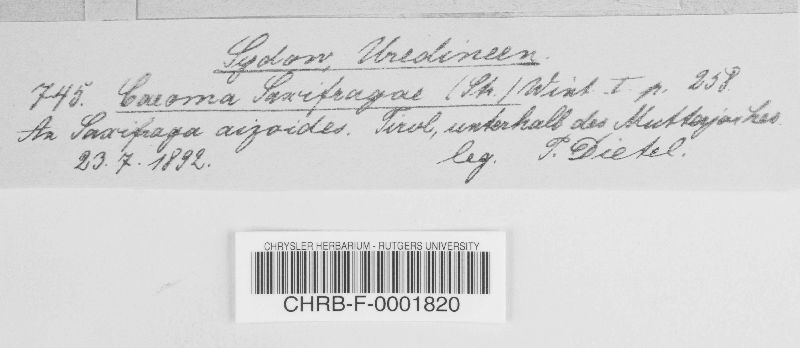 Sydow, Uredineen.
745. Caeoma Saxifragae (Str.) Wint. I p. 258.
An Saxifraga aizoides. Tirol, unterhalb des Mutterjoches
23.7.1892. leg. P. Dietel.
CHRYSLER HERBARIUM - RUTGERS UNIVERSITY
CHRB-F-0001820